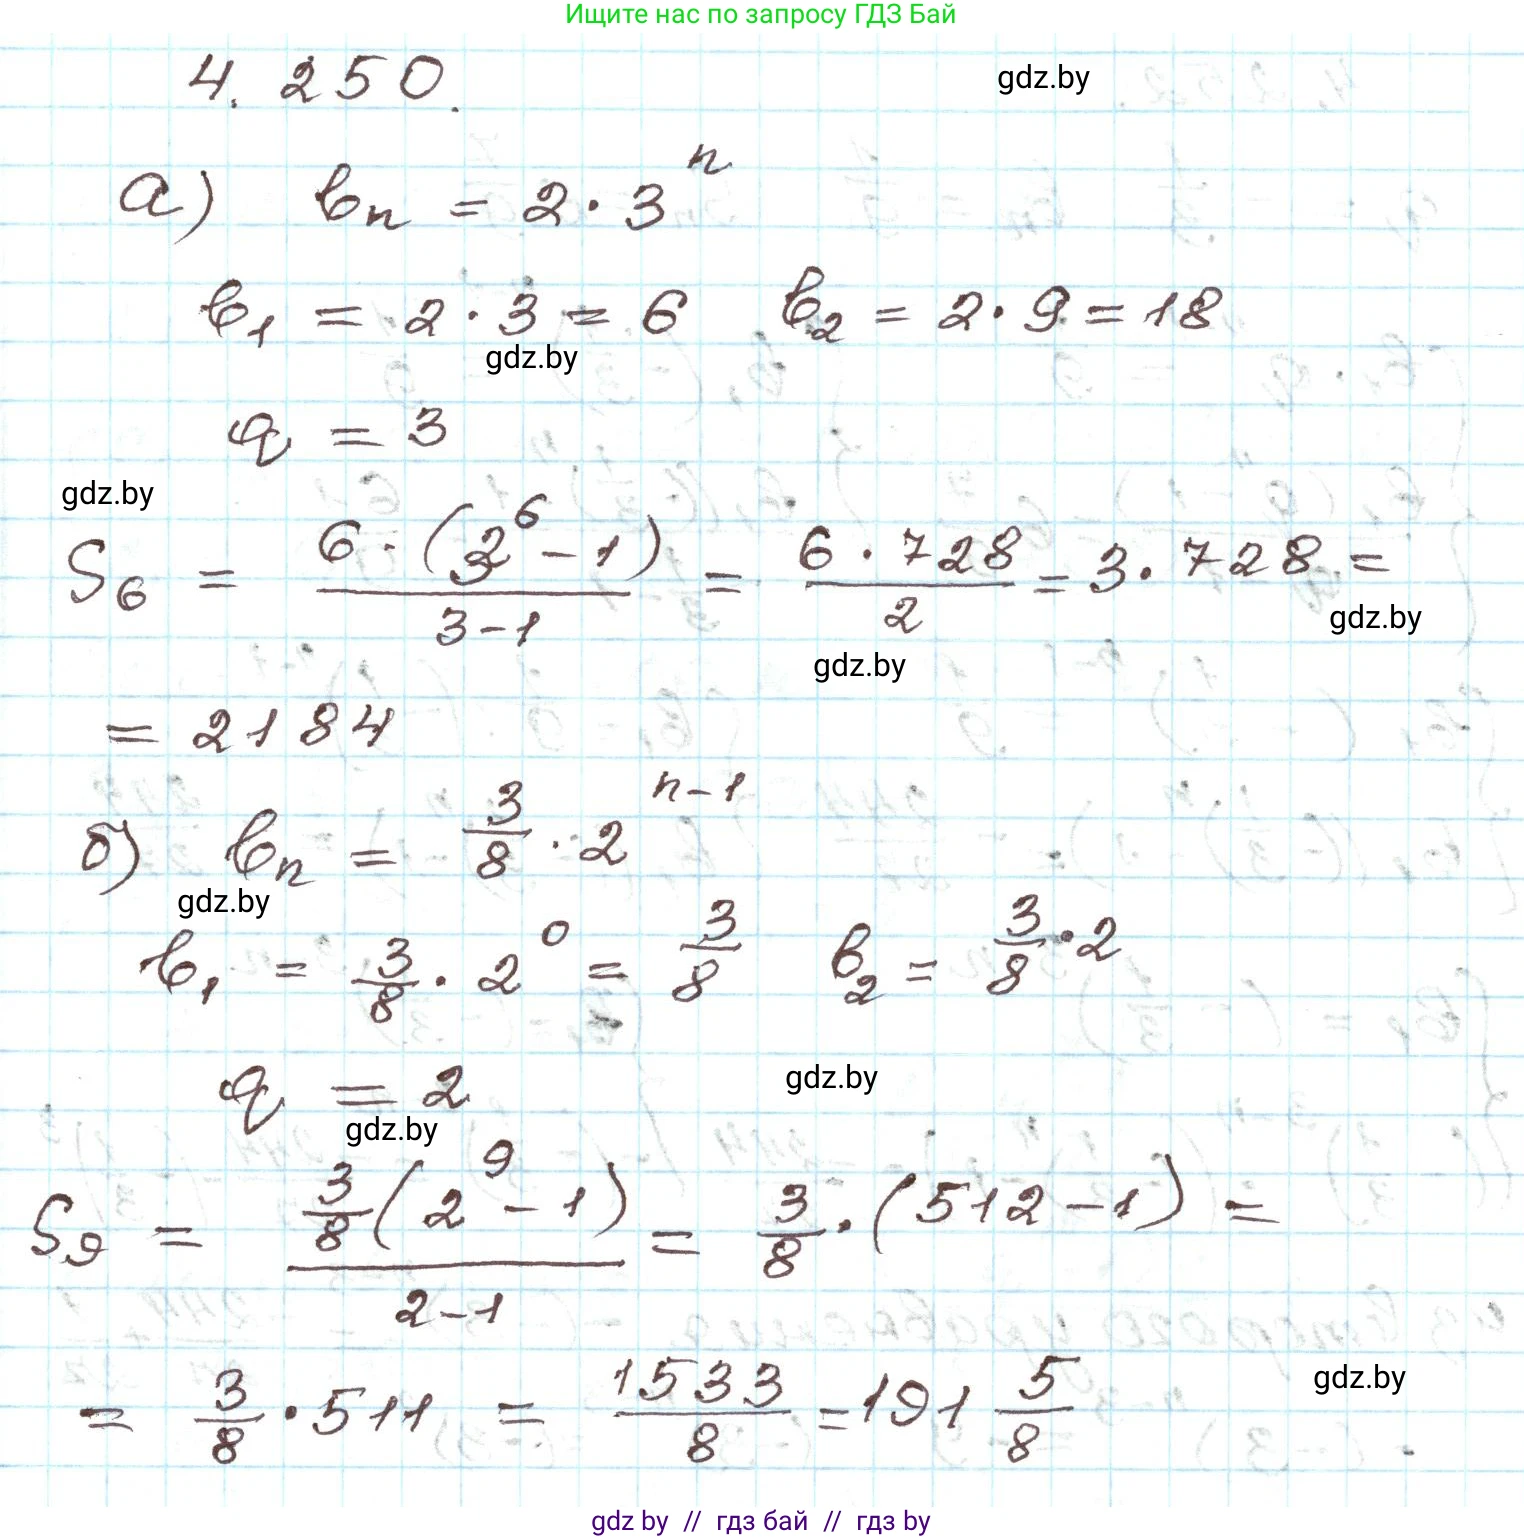 Ищите нас по запросу ГДЗ Бай
4. 250.
gdz.by
а) bₙ = 2 · 3ⁿ
b₁ = 2 · 3 = 6 b₂ = 2 · 9 = 18
gdz.by
q = 3
gdz.by
S₆ = 6 · (3⁶ - 1) / (3 - 1) = 6 · 728 / 2 = 3 · 728 =
gdz.by
gdz.by
= 2184
б) bₙ = 3/8 · 2ⁿ⁻¹
gdz.by
b₁ = 3/8 · 2⁰ = 3/8 b₂ = 3/8 · 2
q = 2
gdz.by
gdz.by
S₉ = 3/8 (2⁹ - 1) / (2 - 1) = 3/8 · (512 - 1) =
= 3/8 · 511 = 1533/8 = 191 5/8
gdz.by
gdz by // гдз бай // гдз by